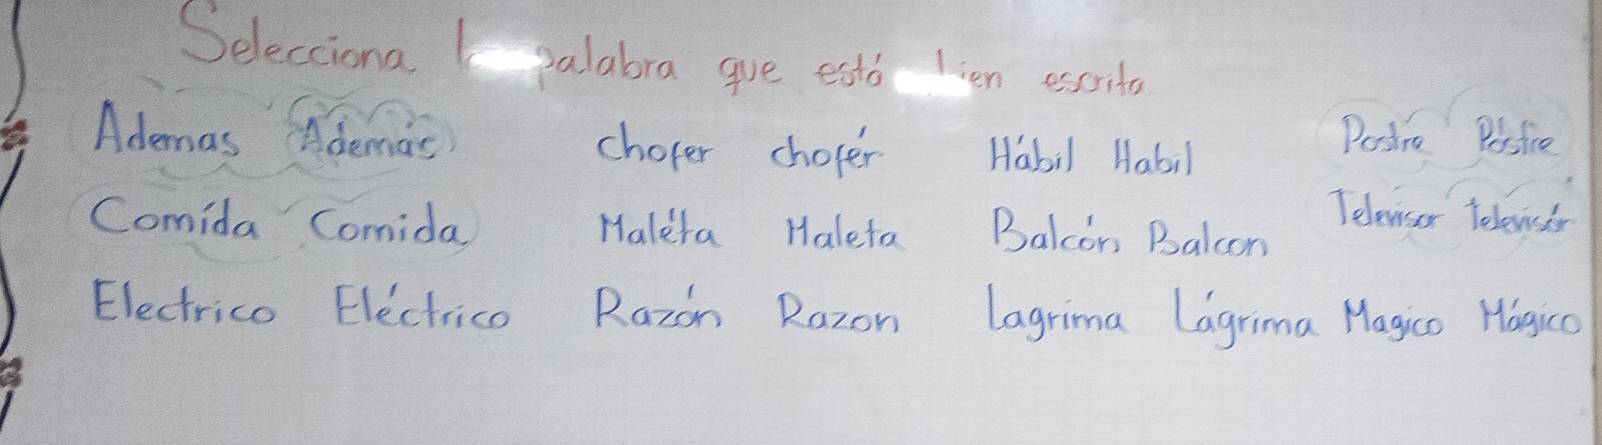 Selecciona palabra que está bien escrita
Ademas Además chofer chofér Hábil Habil Postre Póstre
Comída Comida Maléta Maleta Balcón Balcon Televisor Televisór
Electrico Eléctrico Razón Razon Lagrima Lágrima Magico Mágico